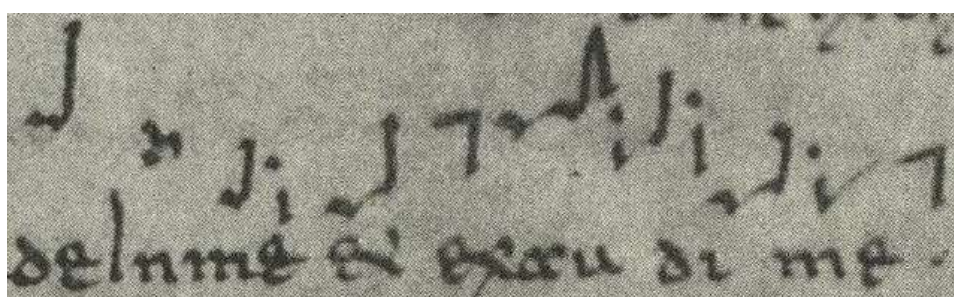 de In me et exau di me .